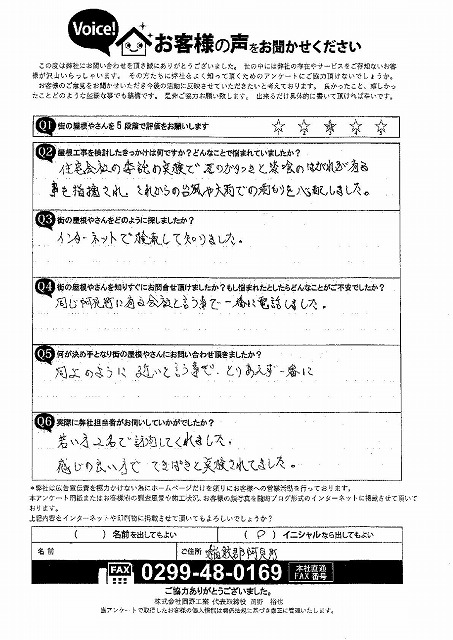 Voice!
お客様の声をお聞かせください
この度は弊社にお問い合わせを頂き誠にありがとうございました。世の中には弊社の存在やサービスをご存知ないお客
様が沢山いらっしゃいます。その方たちに弊社をよく知って頂くためのアンケートにご協力頂けないでしょうか。
お客様のご意見をお聞かせいただき今後の活動に反映させていただきたいと考えております。良かったこと、嬉しかっ
たことどのような些細な事でも結構です。是非ご協力お願い致します。出来るだけ具体的に書いて頂ければ幸いです。
Q1 街の屋根やさんを5段階で評価をお願いします ☆ ☆ ☆ ☆ ☆
Q2 屋根工事を検討したきっかけは何ですか?どんなことで悩まれていましたか?
住宅会社の
のはがれが有る
事を指摘され、これからの台風や大雨での雨もりを心配しました。
Q3 街の屋根やさんをどのように探しましたか?
インターネットで検索して知りました。
Q4 街の屋根やさんを知りすぐにお問合せ頂けましたか?もし悩まれたとしたらどんなことがご不安でしたか?
同じ阿見町に有る会社と言う事で一番に電話しました。
Q5 何が決め手となり街の屋根やさんにお問い合わせ頂きましたか?
同上のように近いと言う事で、とりあえず一番に
Q6 実際に弊社担当者がお伺いしていかがでしたか?
若い方2名で訪問してくれました。
感じの良い方で てきぱきと実検されてました。
*弊社は広告宣伝費を極力かけない為にホームページだけを頼りにお客様への営業活動を行っております。
本アンケート用紙またはお客様宅の調査風景や施工状況、お客様の顔写真を随時ブログ形式のインターネットに掲載させて頂いて
おります。
上記内容をインターネットや印刷物に掲載させて頂いてもよろしいでしょうか?
( )名前を出してもよい ( ○ )イニシャルなら出してもよい
名前 ご住所 稲敷郡阿見町
FAX 0299-48-0169 本社直通 FAX番号
ご協力ありがとうございました。
株式会社岡野工業 代表取締役
当アンケートで取得したお客様の個人情報は